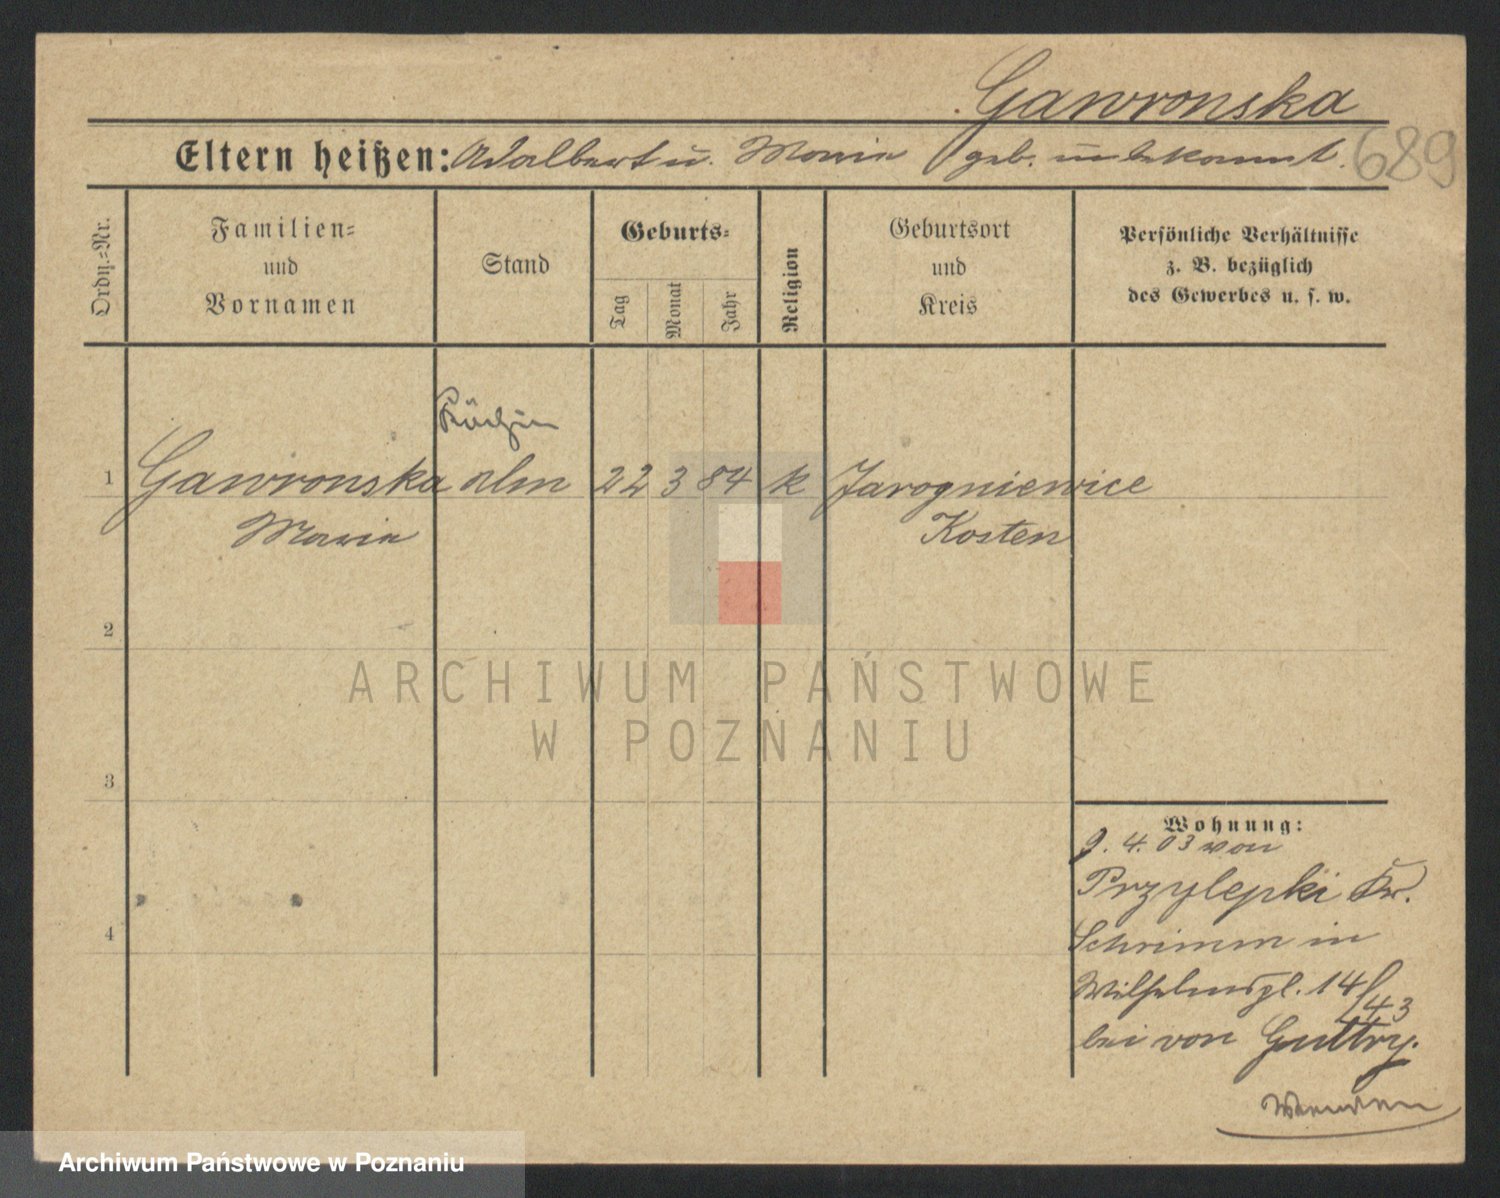 Gawronska
Eltern heißen: Adalbert u. Maria geb. unbekannt. 689
Ordn.-Nr.
Familien-
und
Vornamen
Stand
Geburts-
Tag
Monat
Jahr
Religion
Geburtsort
und
Kreis
Persönliche Verhältnisse
z. B. bezüglich
des Gewerbes u. s. w.
Köchin
1 Gawronska 22 3 84 k Jarogniewice
Maria Kosten
2
3
4
Wohnung:
9. 4. 03 von
Przylepki Kr.
Schrimm in
Wilhelmspl. 14/
43
bei von Guttry.
ARCHIWUM PAŃSTWOWE
W POZNANIU
Archiwum Państwowe w Poznaniu